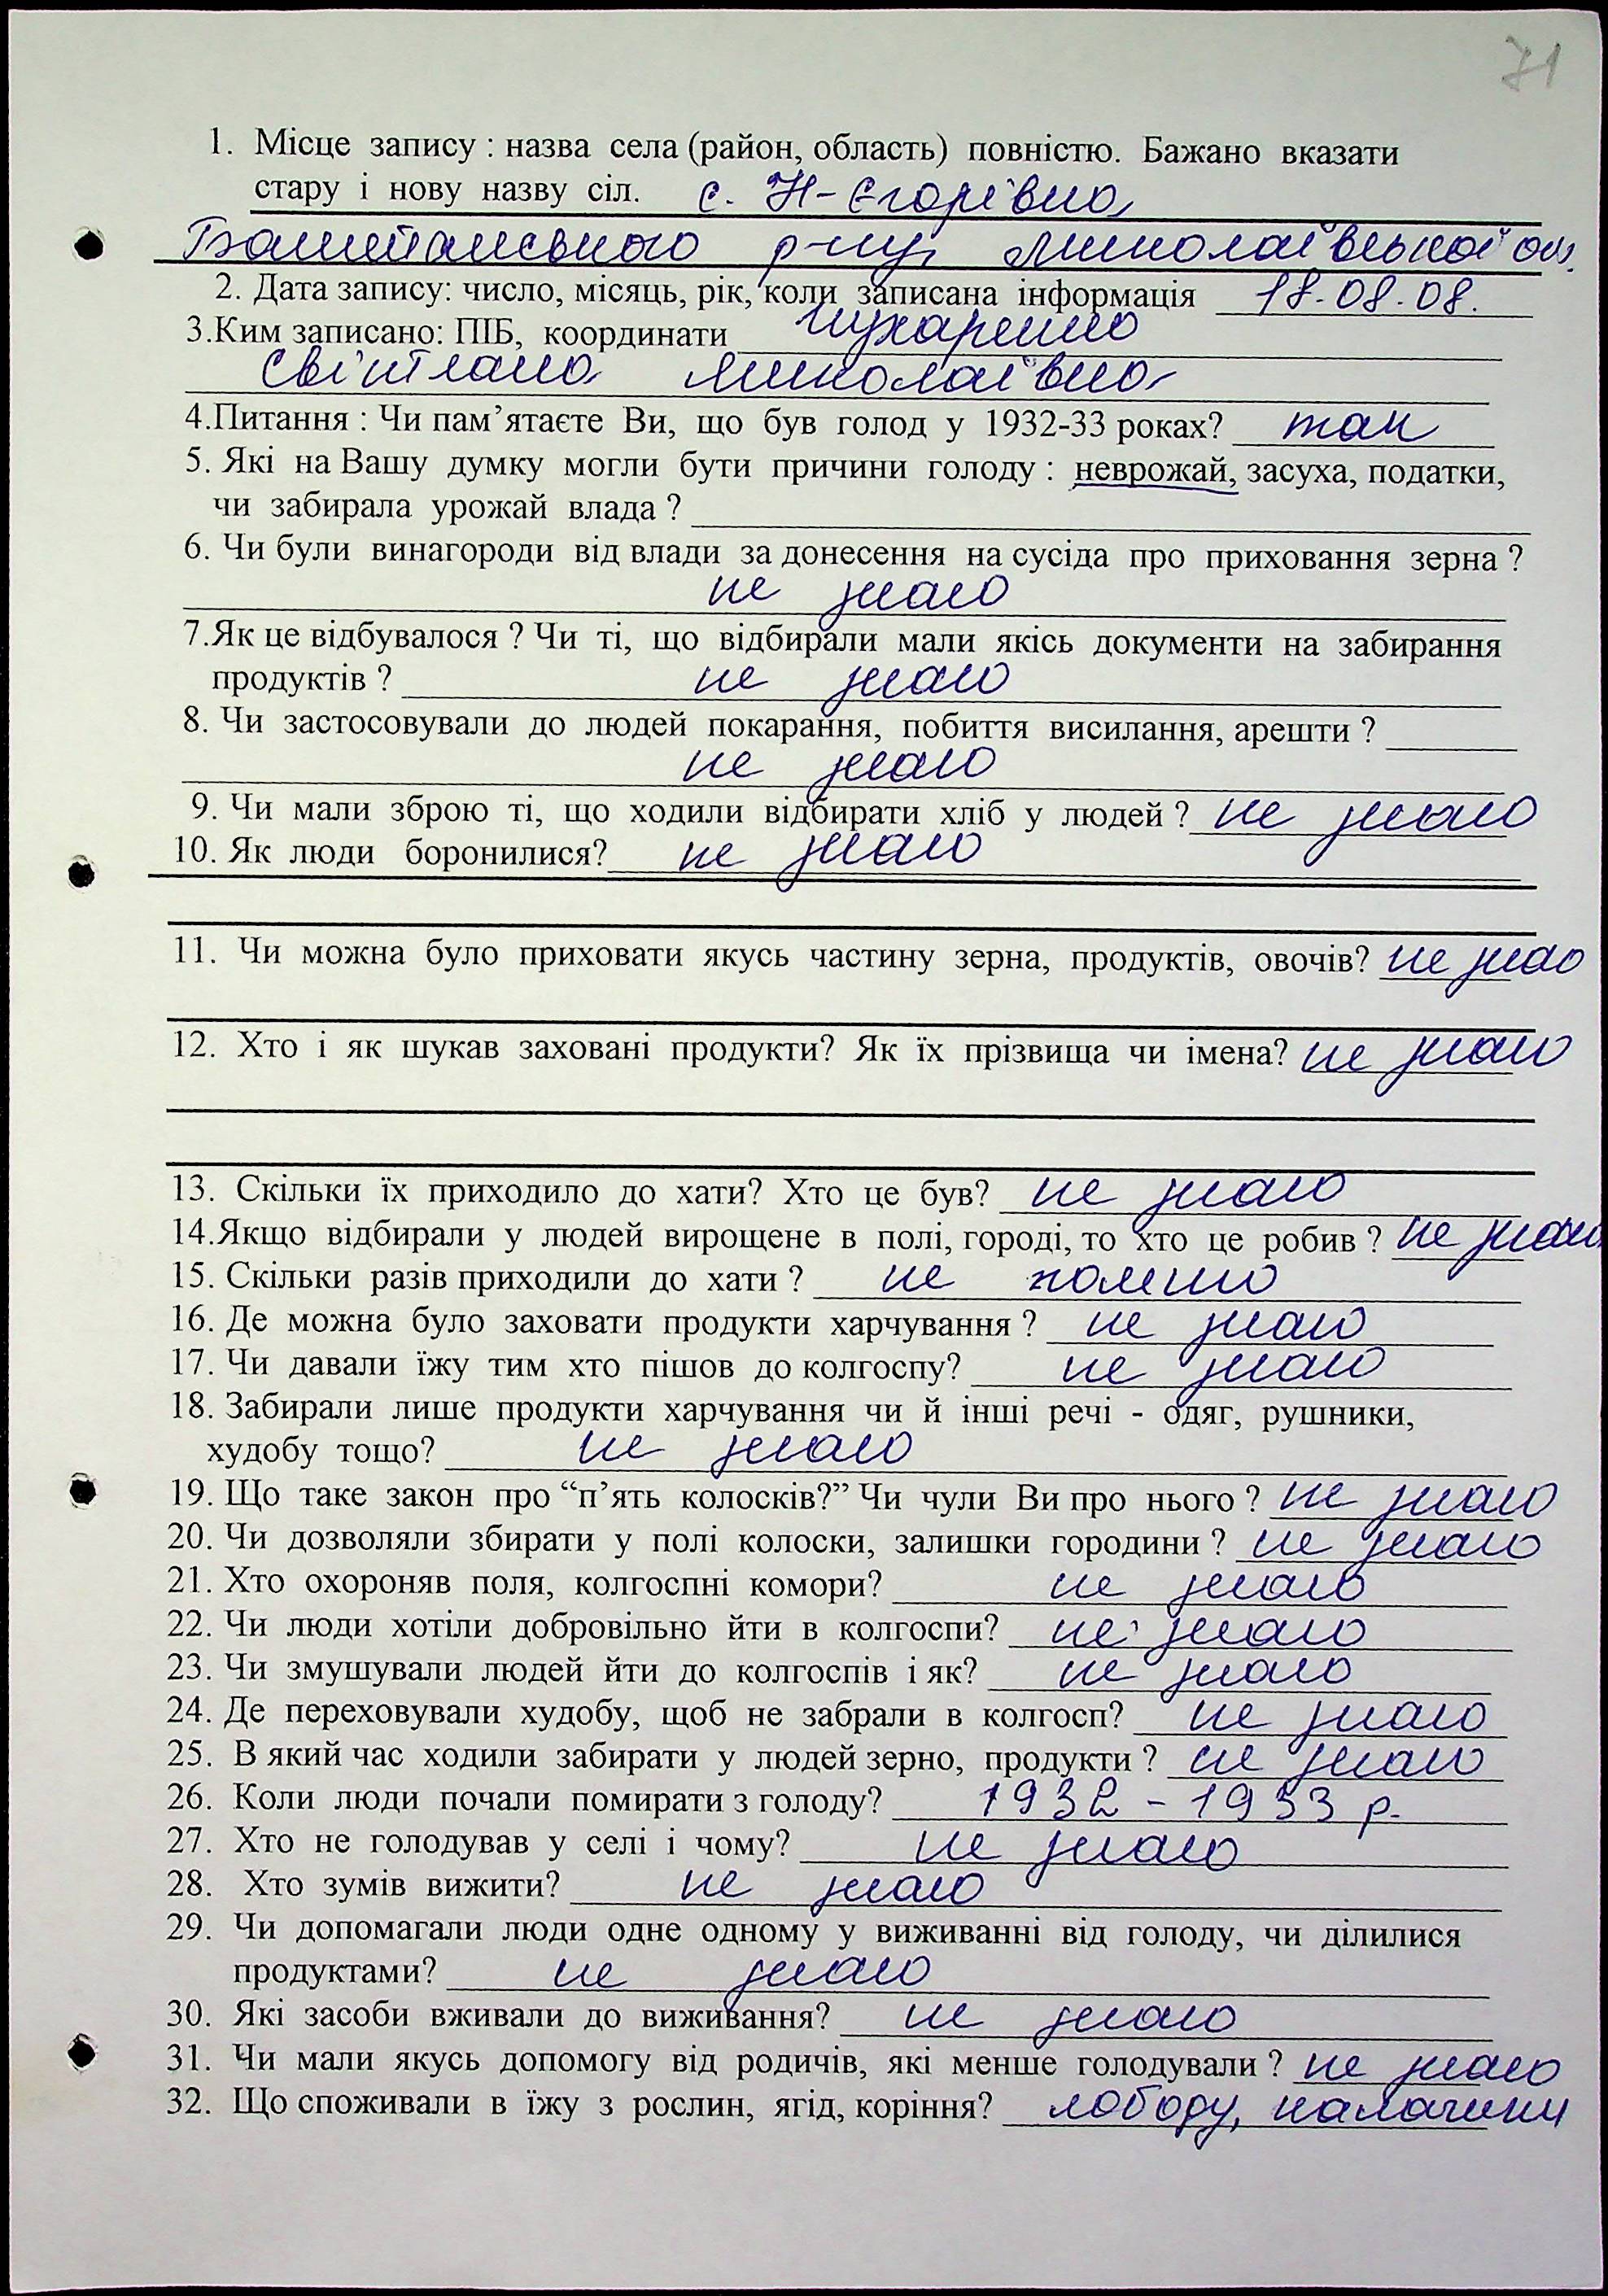 71
1. Місце запису : назва села (район, область) повністю. Бажано вказати
стару і нову назву сіл. с. Н-Єгорівка,
Баштанського р-ну, Миколаївської об.
2. Дата запису: число, місяць, рік, коли записана інформація 18.08.08.
3.Ким записано: ПІБ, координати
Світлана Миколаївна
4.Питання : Чи пам’ятаєте Ви, що був голод у 1932-33 роках? так
5. Які на Вашу думку могли бути причини голоду : неврожай, засуха, податки,
чи забирала урожай влада ?
6. Чи були винагороди від влади за донесення на сусіда про приховання зерна ?
не знаю
7.Як це відбувалося ? Чи ті, що відбирали мали якісь документи на забирання
продуктів ? не знаю
8. Чи застосовували до людей покарання, побиття висилання, арешти ?
не знаю
9. Чи мали зброю ті, що ходили відбирати хліб у людей ? не знаю
10. Як люди боронилися? не знаю
11. Чи можна було приховати якусь частину зерна, продуктів, овочів? не знаю
12. Хто і як шукав заховані продукти? Як їх прізвища чи імена? не знаю
13. Скільки їх приходило до хати? Хто це був? не знаю
14.Якщо відбирали у людей вирощене в полі, городі, то хто це робив ? не знаю
15. Скільки разів приходили до хати ? не помню
16. Де можна було заховати продукти харчування ? не знаю
17. Чи давали їжу тим хто пішов до колгоспу? не знаю
18. Забирали лише продукти харчування чи й інші речі - одяг, рушники,
худобу тощо? не знаю
19. Що таке закон про “п’ять колосків?” Чи чули Ви про нього ? не знаю
20. Чи дозволяли збирати у полі колоски, залишки городини ? не знаю
21. Хто охороняв поля, колгоспні комори? не знаю
22. Чи люди хотіли добровільно йти в колгоспи? не знаю
23. Чи змушували людей йти до колгоспів і як? не знаю
24. Де переховували худобу, щоб не забрали в колгосп? не знаю
25. В який час ходили забирати у людей зерно, продукти ? не знаю
26. Коли люди почали помирати з голоду? 1932 - 1933 р.
27. Хто не голодував у селі і чому? не знаю
28. Хто зумів вижити? не знаю
29. Чи допомагали люди одне одному у виживанні від голоду, чи ділилися
продуктами? не знаю
30. Які засоби вживали до виживання? не знаю
31. Чи мали якусь допомогу від родичів, які менше голодували ? не знаю
32. Що споживали в їжу з рослин, ягід, коріння? лободу, калачики